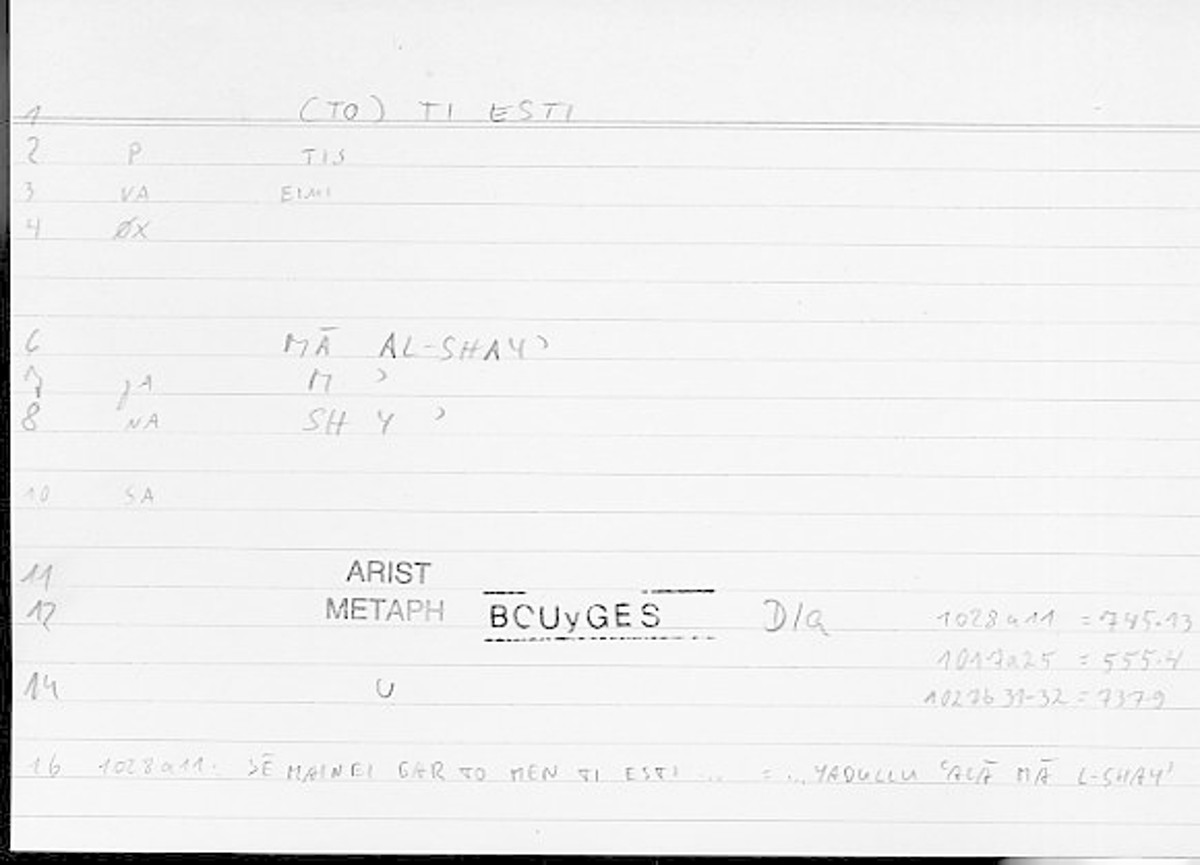 1 (TO) TI ESTI
2 P TIS
3 VA EIMI
4 ØX
6 MĀ AL-SHAY ʾ
7 JA M ʾ
8 NA SH Y ʾ
10 SA
11 ARIST
12 METAPH BOUyGES D/a 1028a11 = 745.13
1017a25 = 555.4
14 U 1027b31-32 = 737.9
16 1028a11: SĒMAINEI GAR TO MEN TI ESTI ... = ... YADULLU ʿALĀ MĀ L-SHAYʾ